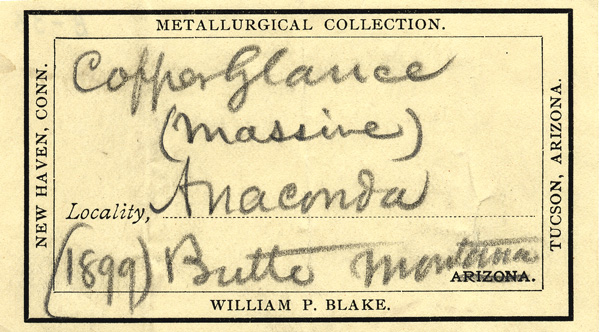 METALLURGICAL COLLECTION.
NEW HAVEN, CONN.
TUCSON, ARIZONA.
Copper Glance
(massive)
Locality, Anaconda
(1899) Butte Montana
ARIZONA.
WILLIAM P. BLAKE.